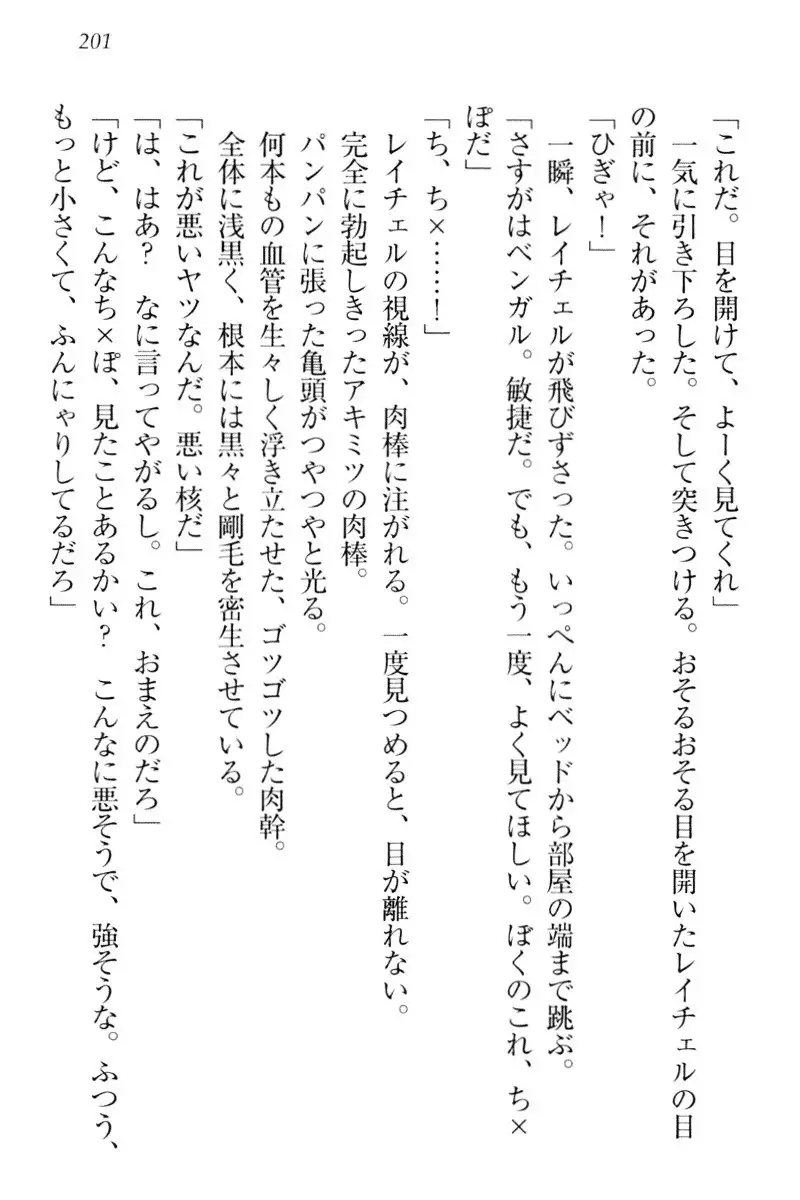 201
「これだ。目を開けて、よーく見てくれ」
一気に引き下ろした。そして突きつける。おそるおそる目を開いたレイチェルの目
の前に、それがあった。
「ひぎゃ！」
一瞬、レイチェルが飛びずさった。いっぺんにベッドから部屋の端まで跳ぶ。
「さすがはベンガル。敏捷だ。でも、もう一度、よく見てほしい。ぼくのこれ、ち×
ぽだ」
「ち、ち×……！」
レイチェルの視線が、肉棒に注がれる。一度見つめると、目が離れない。
完全に勃起しきったアキミツの肉棒。
パンパンに張った亀頭がつやつやと光る。
何本もの血管を生々しく浮き立たせた、ゴツゴツした肉幹。
全体に浅黒く、根本には黒々と剛毛を密生させている。
「これが悪いヤツなんだ。悪い核だ」
「は、はあ？　なに言ってやがるし。これ、おまえのだろ」
「けど、こんなち×ぽ、見たことあるかい？　こんなに悪そうで、強そうな。ふつう、
もっと小さくて、ふんにゃりしてるだろ」